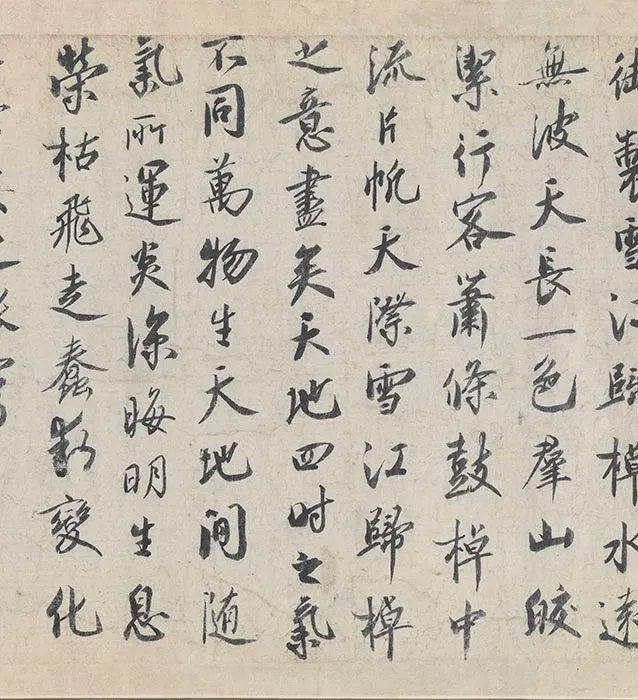 御製雪江歸棹水遠
無波天長一色羣山皎
潔行客蕭條鼓棹中
流片帆天際雪江歸棹
之意盡矣天地四時之氣
不同萬物生天地間隨
氣所運炎涼晦明生息
榮枯飛走蠢動變化